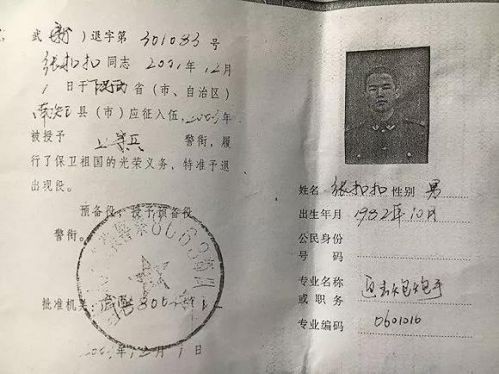 武（新）退字第301083号
张扣扣同志2001年12月
1日于陕西省（市、自治区）
南郑县（市）应征入伍，2003年
被授予上等兵警衔，履
行了保卫祖国的光荣义务，特准予退
出现役。
预备役，授予预备役
警衔。
批准机关：
2003年12月1日
姓名 张扣扣 性别 男
出生年月 1982年10月
公民身份
号码
专业名称
或职务 迫击炮炮手
专业编码 0601010